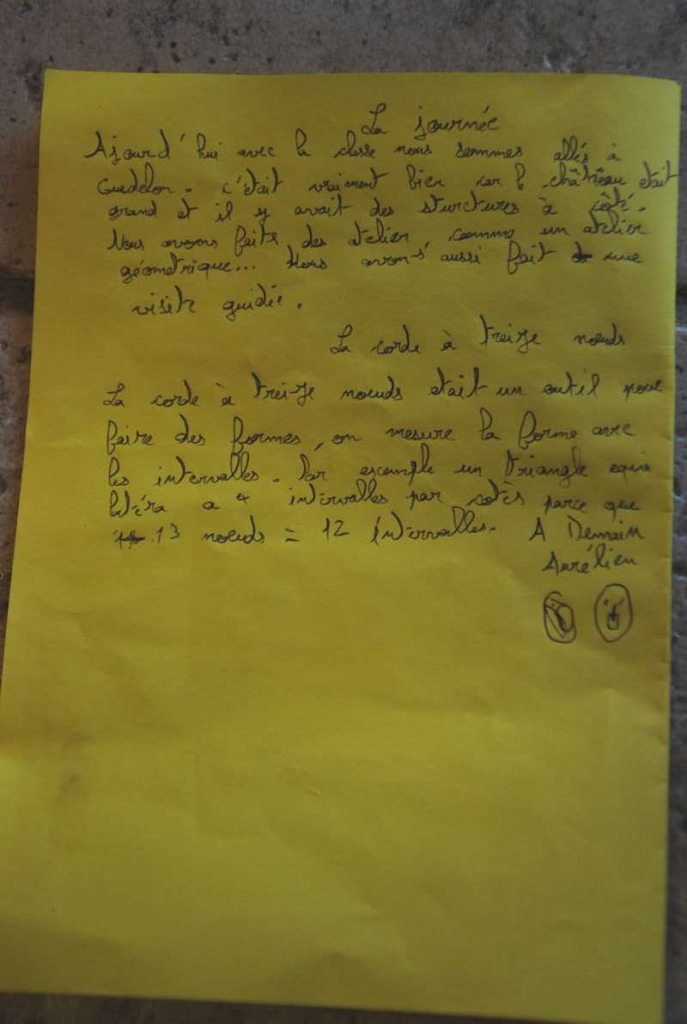 La journée
Ajourd'hui avec la classe nous sommes allés à
Guedelon. c'était vraiment bien car le château etait
grand et il y avait des sturctures à côté.
Nous avons faits des atelier comme un atelier
géometrique... Nous avon-s' aussi fait une
visite guidée.
La corde à treize nœuds
La corde à treize nœuds etait un outil pour
faire des formes, on mesure la forme avec
les intervalles. Par exemple un triangle equi
latéra a 4 intervalles par cotès parce que
13 nœuds = 12 intervalles. A Demain
Aurélien